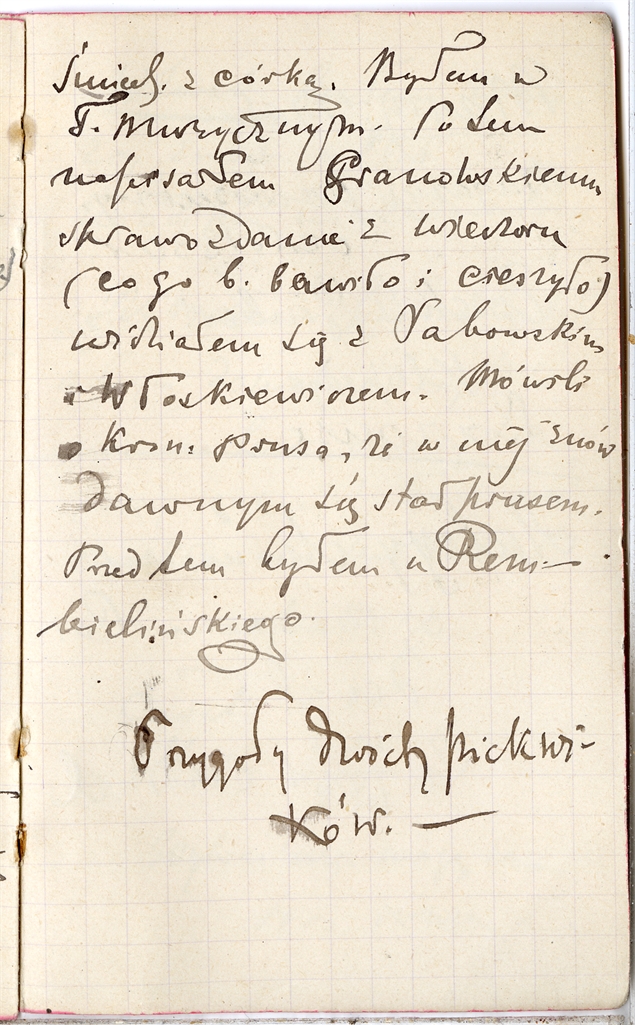 Śniad. z córką. Byłem w
T. Muzycznym. Potem
napisałem Granowskiemu
sprawozdanie z wieczoru
(co go b. bawiło i cieszyło)
widziałem się z Sabowskim
i Włoskiewiczem. Mówili
o Kron. Prusa, że w niej znów
dawnym się stał prusem.
Przed tem byłem u Rem-
bielińskiego.
Przygody dwóch pickwi-
ków. —